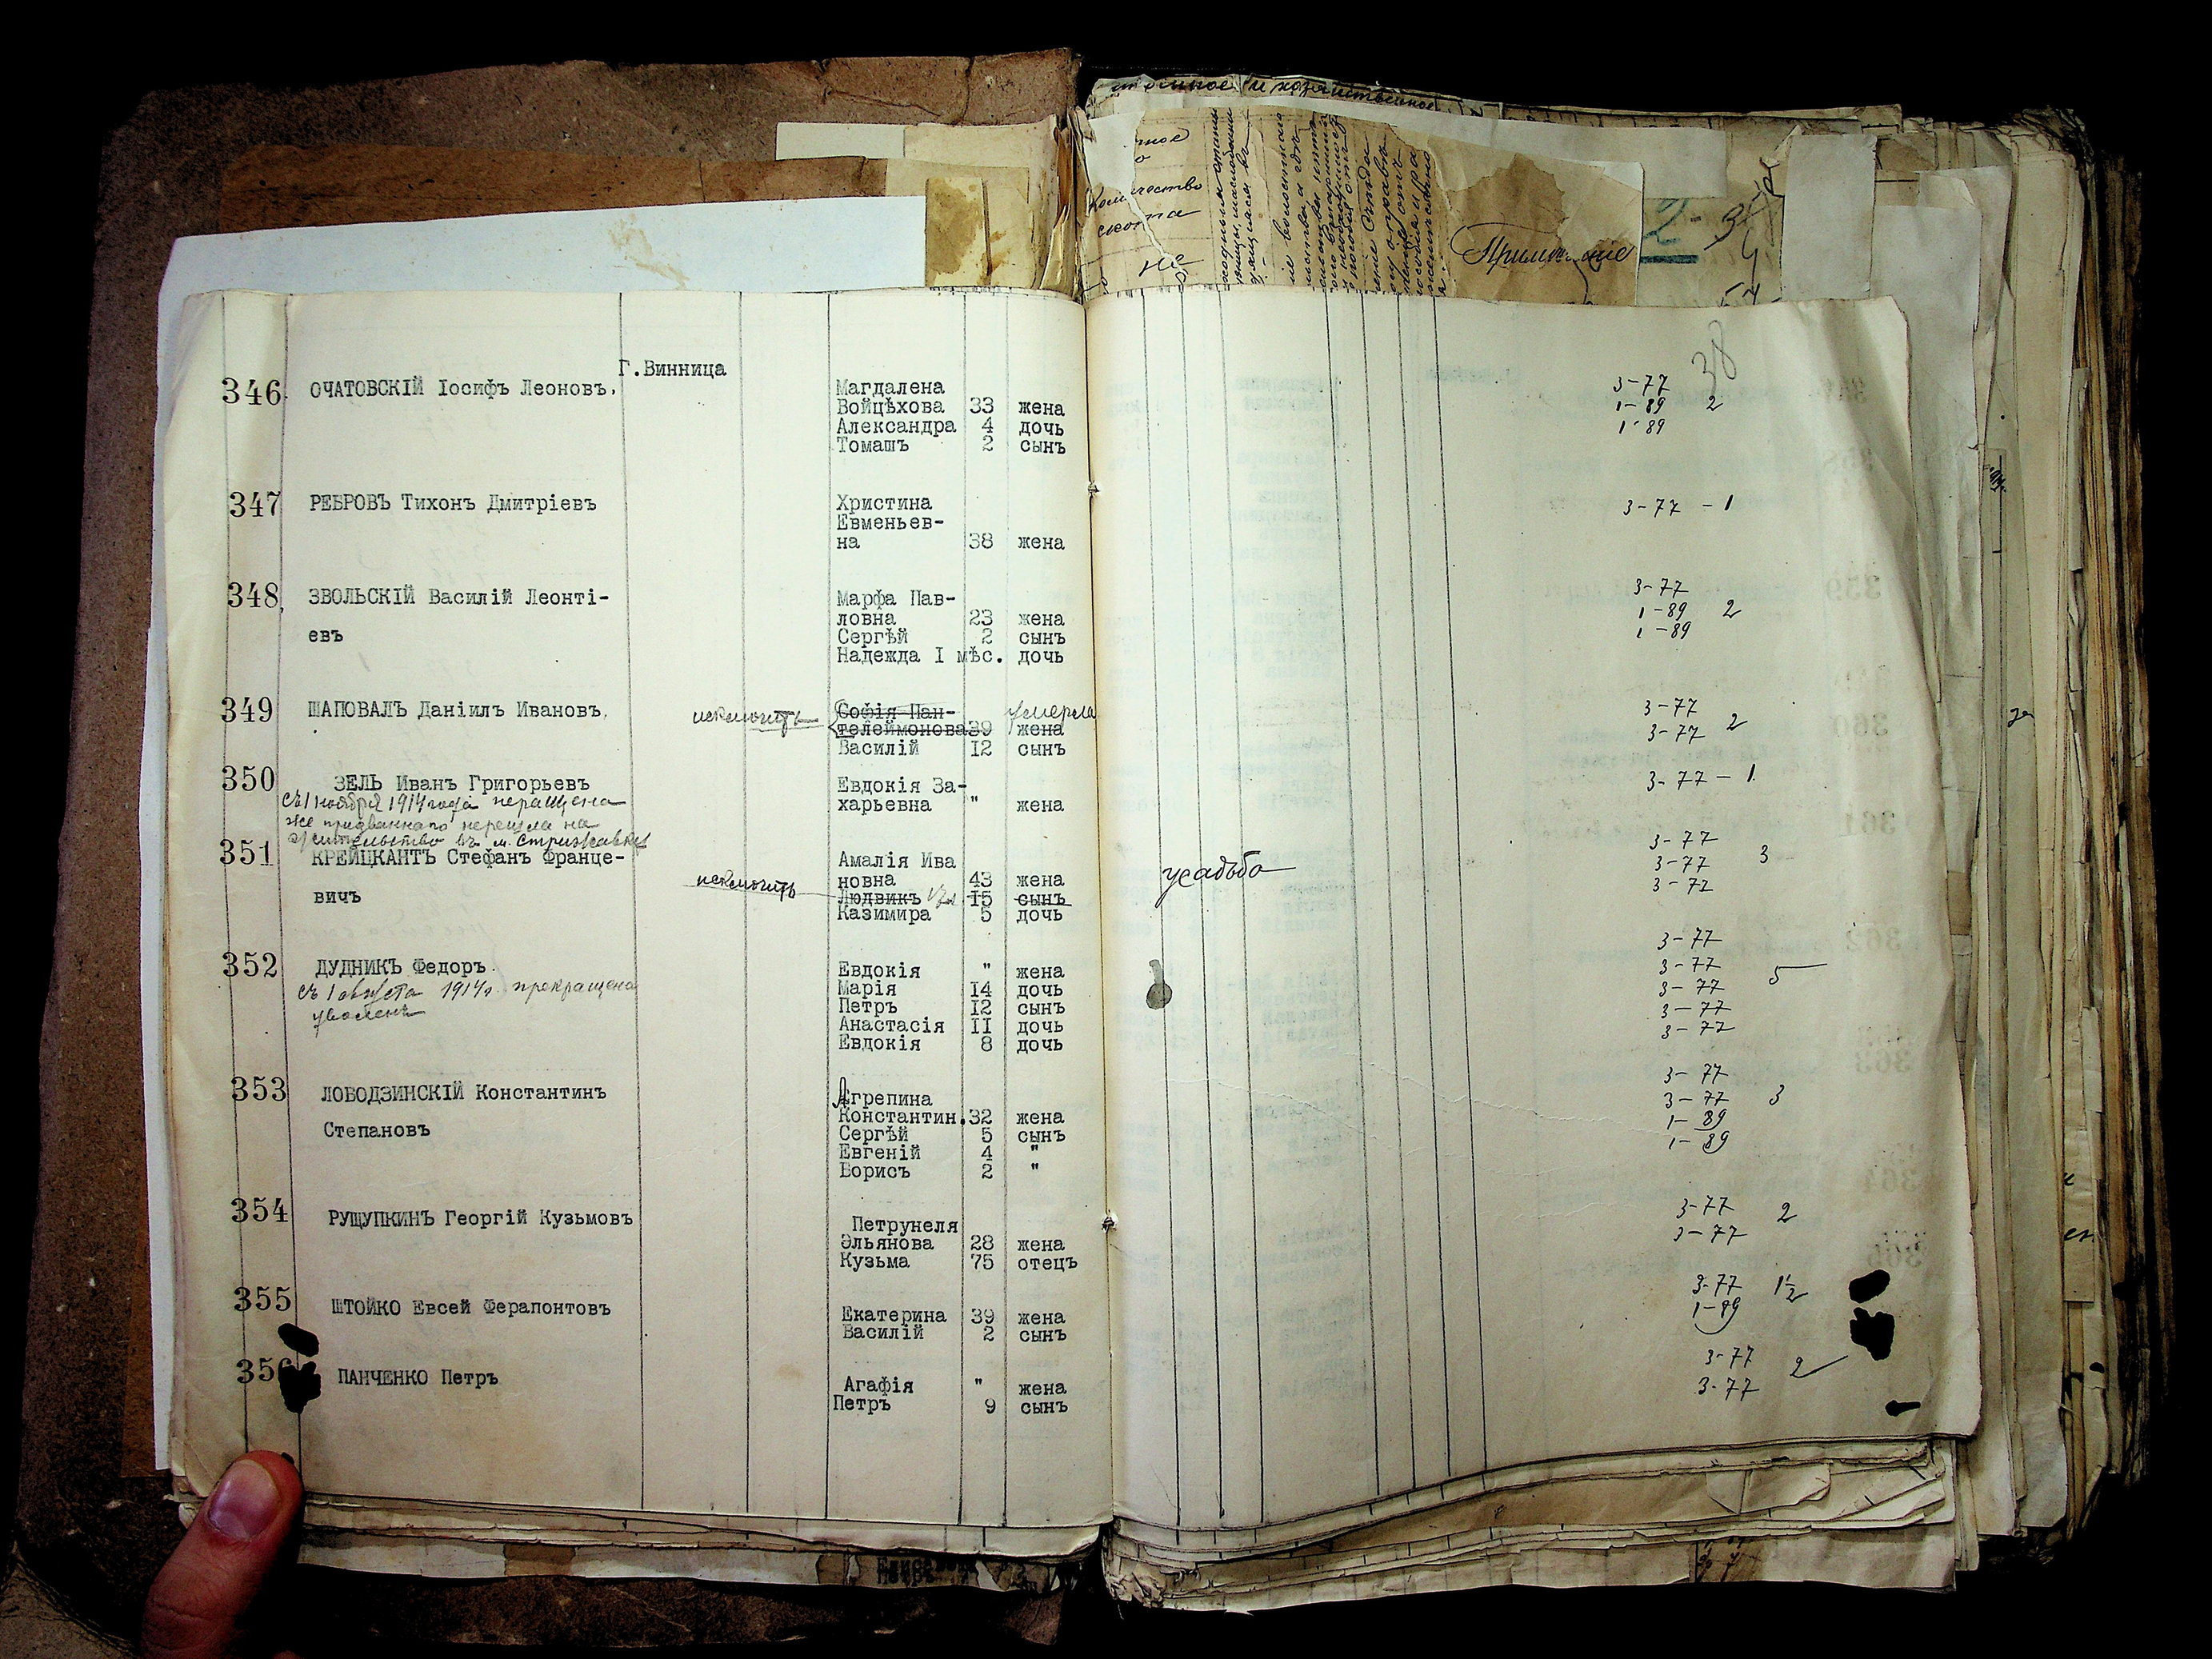 Г.Винница
38
346 ОЧАТОВСКІЙ Іосифъ Леоновъ. Магдалена 3-77
Войцѣхова 33 жена 1-89 2
Александра 4 дочь 1-89
Томашъ 2 сынъ
347 РЕБРОВЪ Тихонъ Дмитріевъ Христина 3-77 - 1
Евменьев-
на 38 жена
348 ЗВОЛЬСКІЙ Василій Леонті- Марфа Пав- 3-77
ловна 23 жена 1-89 2
евъ Сергѣй 2 сынъ 1-89
Надежда I мѣс. дочь
349 ШАПОВАЛЪ Даніилъ Ивановъ. исключить Софія Пан- умерла 3-77
телеймонова 39 жена 3-77 2
Василій I2 сынъ
350 ЗЕЛЬ Иванъ Григорьевъ Евдокія За- 3-77-1
съ 1 ноября 1914 года харьевна " жена
же призваннаго перешла на
жительство въ м. Стрижавку
351 КРЕЙЦКАНТЪ Стефанъ Францe- Амалія Ива 3-77
исключить новна 43 жена усадьба 3-77 3
вичъ Людвикъ I5 сынъ 3-77
Казимира 5 дочь
352 ДУДНИКЪ Федоръ. Евдокія " жена 3-77
съ 1 августа 1914 г. прекращена Марія I4 дочь 3-77 5
уволенъ Петръ I2 сынъ 3-77
Анастасія II дочь 3-77
Евдокія 8 дочь 3-77
353 ЛОБОДЗИНСКІЙ Константинъ Агрепина 3-77
Константин.32 жена 3-77 3
Степановъ Сергѣй 5 сынъ 1-89
Евгеній 4 " 1-89
Борисъ 2 "
354 РУЩУПКИНЪ Георгій Кузьмовъ Петрунеля 3-77 2
Эльянова 28 жена 3-77
Кузьма 75 отецъ
355 ШТОЙКО Евсей Ферапонтовъ Екатерина 39 жена 3-77 1½
Василій 2 сынъ 1-89
356 ПАНЧЕНКО Петръ Агафія " жена 3-77 2
Петръ 9 сынъ 3-77